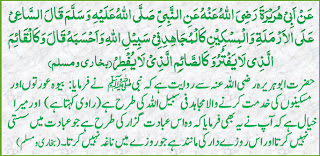 عَنْ اَبِیْ هُرَیْرَةَ رَضِیَ اللهُ عَنْهُ عَنِ النَّبِیِّ صَلَّی اللهُ عَلَیْهِ وَسَلَّمَ قَالَ السَّاعِیْ
عَلَی الْاَرْمِلَةِ وَالْمِسْكِیْنِ كَالْمُجَاهِدِ فِیْ سَبِیْلِ اللهِ وَاَحْسِبُهٗ قَالَ وَكَالْقَائِمِ
الَّذِیْ لَا یَفْتُرُ وَكَالصَّائِمِ الَّذِیْ لَا یُفْطِرُ (بخاری و مسلم)
حضرت ابو ہریرہ رضی اللہ عنہ سے روایت ہے کہ نبی ﷺ نے فرمایا: بیوہ عورتوں اور
مسکینوں کی خدمت کرنے والا مجاہد فی سبیل اللہ کی طرح ہے (راوی کہتا ہے) اور میرا
خیال ہے کہ آپ نے یہ بھی فرمایا کہ وہ اس عبادت گزار کی طرح ہے جو عبادت میں سستی
نہیں کرتا اور اس روزے دار کی مانند ہے جو روزے میں ناغہ نہیں کرتا۔ (بخاری و مسلم)